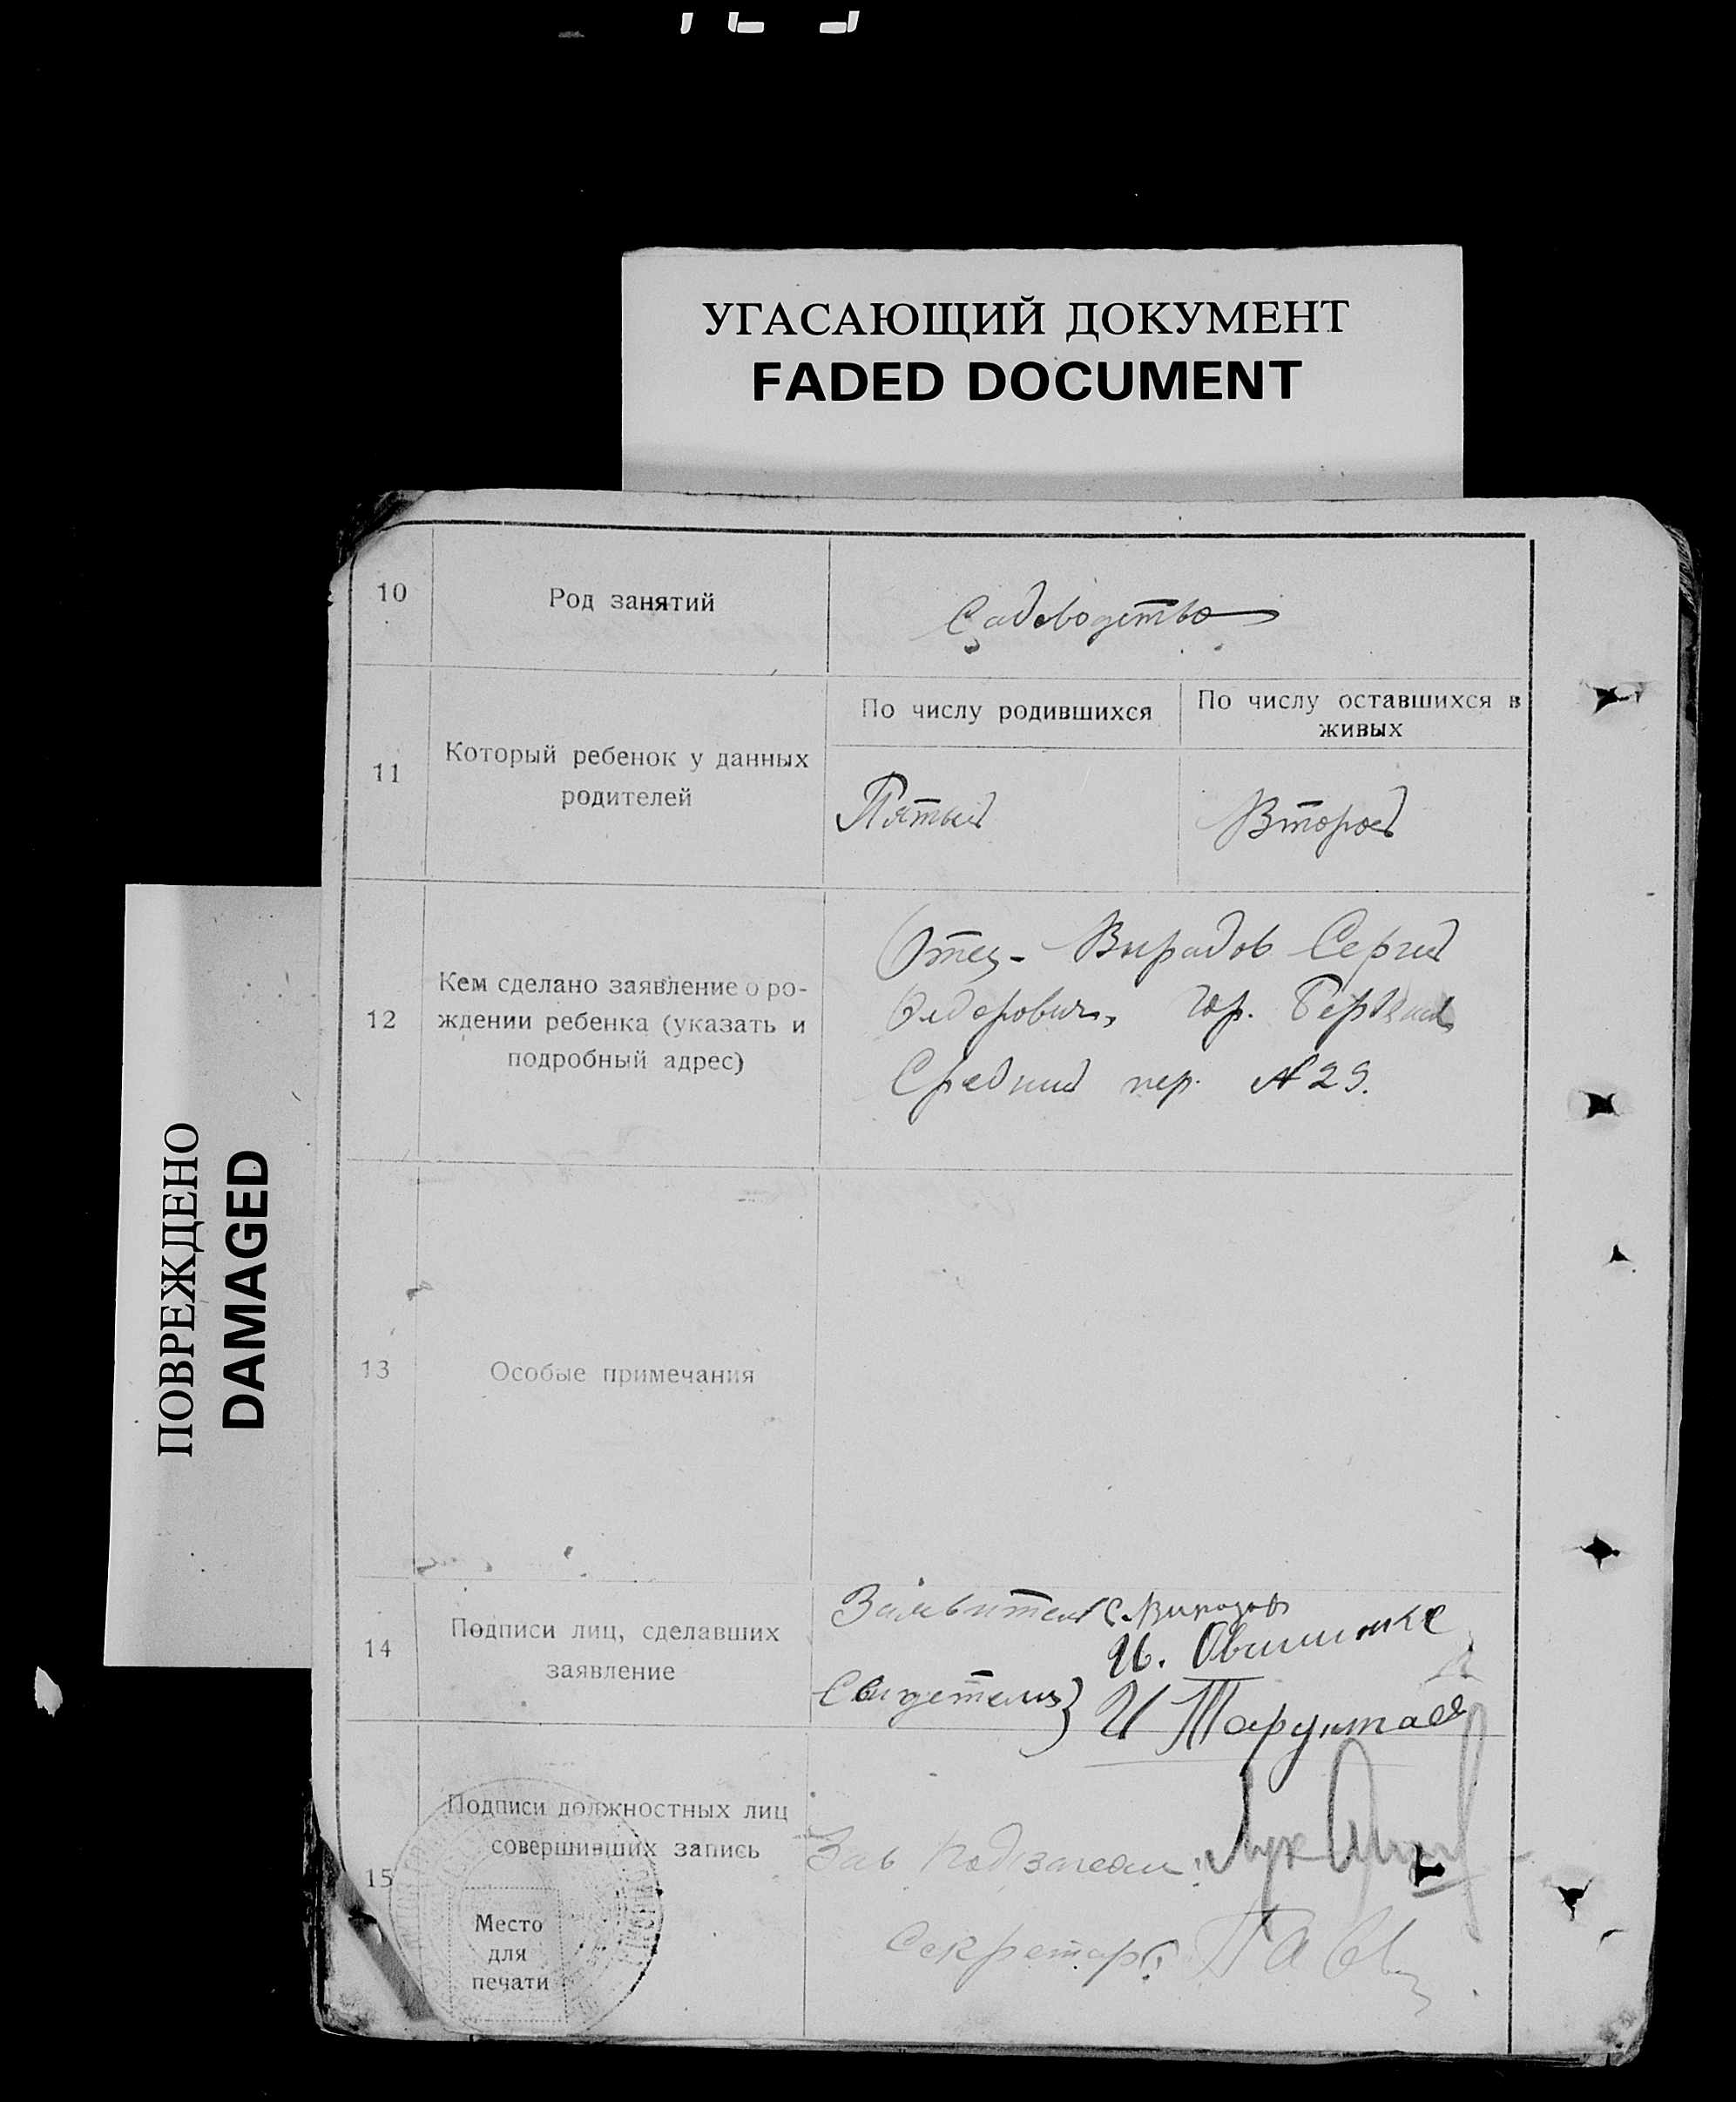 УГАСАЮЩИЙ ДОКУМЕНТ
FADED DOCUMENT
ПОВРЕЖДЕНО
DAMAGED
10
Род занятий
Садоводство
11
Который ребенок у данных
родителей
По числу родившихся
По числу оставшихся в
живых
Пятый
Второй
12
Кем сделано заявление о ро-
ждении ребенка (указать и
подробный адрес)
Отец - Вырадов Сергей
Федорович, гор.
Средний пер. № 29.
13
Особые примечания
14
Подписи лиц, сделавших
заявление
Заявитель С.
И.
Свидетели} И
15
Подписи должностных лиц
совершивших запись
Место
для
печати
Зав
Секретарь